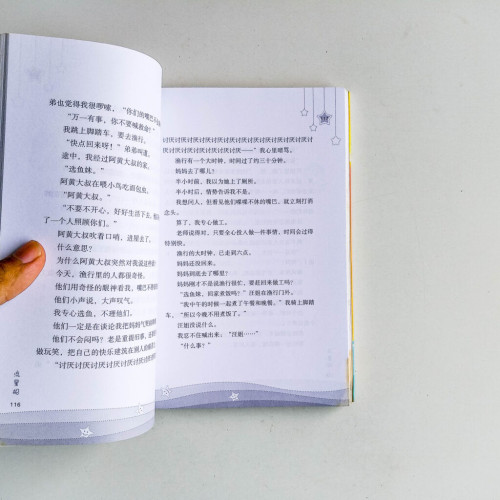 弟也觉得我很啰嗦，“你们的嘴巴
“万一有事，你不要喊救命！”
我跳上脚踏车，要去渔行。
“快点回来呀！”弟弟叫道。
途中，我经过阿黄大叔的家，
“选鱼妹。”
阿黄大叔在喂小鸟吃面包虫，
“阿黄大叔。”
“不要不开心，好好生活下去，
了一个人照顾你们。”
阿黄大叔吹着口哨，进屋去了，
什么意思？
为什么阿黄大叔突然对我说这些
今天，渔行里的人都很奇怪。
他们用奇怪的眼神看我，嘴巴不
他们小声说，大声叹气。
我专心选鱼，不理他们。
他们一定是在谈论我把妈妈气
他们不会闷吗？老是重复旧事，
做玩笑，把自己的快乐建筑在别人的
“讨厌讨厌讨厌讨厌讨厌讨厌讨厌讨厌
116
讨厌讨厌讨厌讨厌讨厌讨厌讨厌讨厌讨厌讨厌讨厌讨厌
讨厌讨厌讨厌讨厌讨厌讨厌讨厌——”我心里暗骂。
渔行有一个大时钟，时间过了约三十分钟。
妈妈去了哪儿？
半小时前，我以为她上了厕所。
半小时后，情势告诉我不是。
我想问人，但看见他们喋喋不休的嘴巴，就立刻打消
念头。
算了，我专心做工。
老师说得对，只要全心投入做一件事情，时间会过得
特别快。
渔行的大时钟，已走到六点。
妈妈还没回来。
妈妈到底去了哪里？
妈妈刚才不是说渔行很忙，要赶回来做工吗？
“选鱼妹，回家煮饭吗？”汪姐在渔行门外。
“我中午的时候一起煮了午餐和晚餐。”我骑上脚踏
车，“所以今晚不用煮饭了。”
汪姐没说什么。
我忍不住喊出来：“汪姐……”
“什么事？”